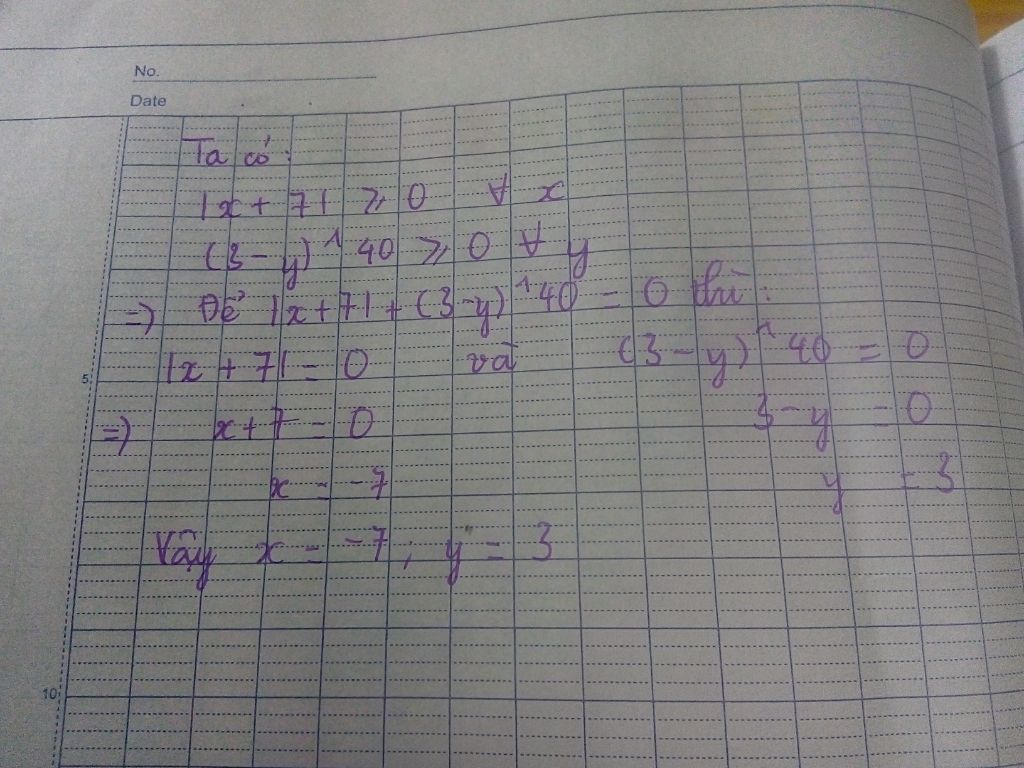 No.
Date
Ta có:
|x + 7| ≥ 0 ∀ x
(3 - y)^40 ≥ 0 ∀ y
=> Để |x + 7| + (3 - y)^40 = 0 thì:
5 |x + 7| = 0 và (3 - y)^40 = 0
=> x + 7 = 0 3 - y = 0
x = -7 y = 3
Vậy x = -7; y = 3
10